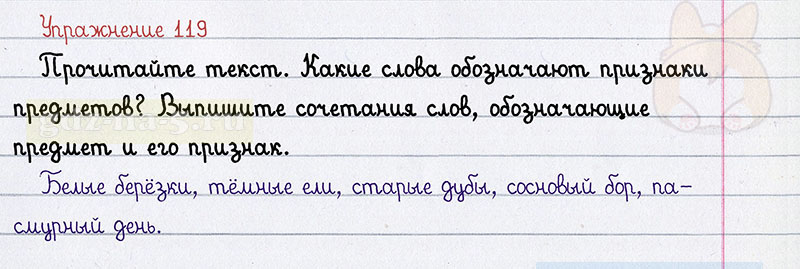 Упражнение 119
Прочитайте текст. Какие слова обозначают признаки
предметов? Выпишите сочетания слов, обозначающие
предмет и его признак.
Белые берёзки, тёмные ели, старые дубы, сосновый бор, па-
смурный день.